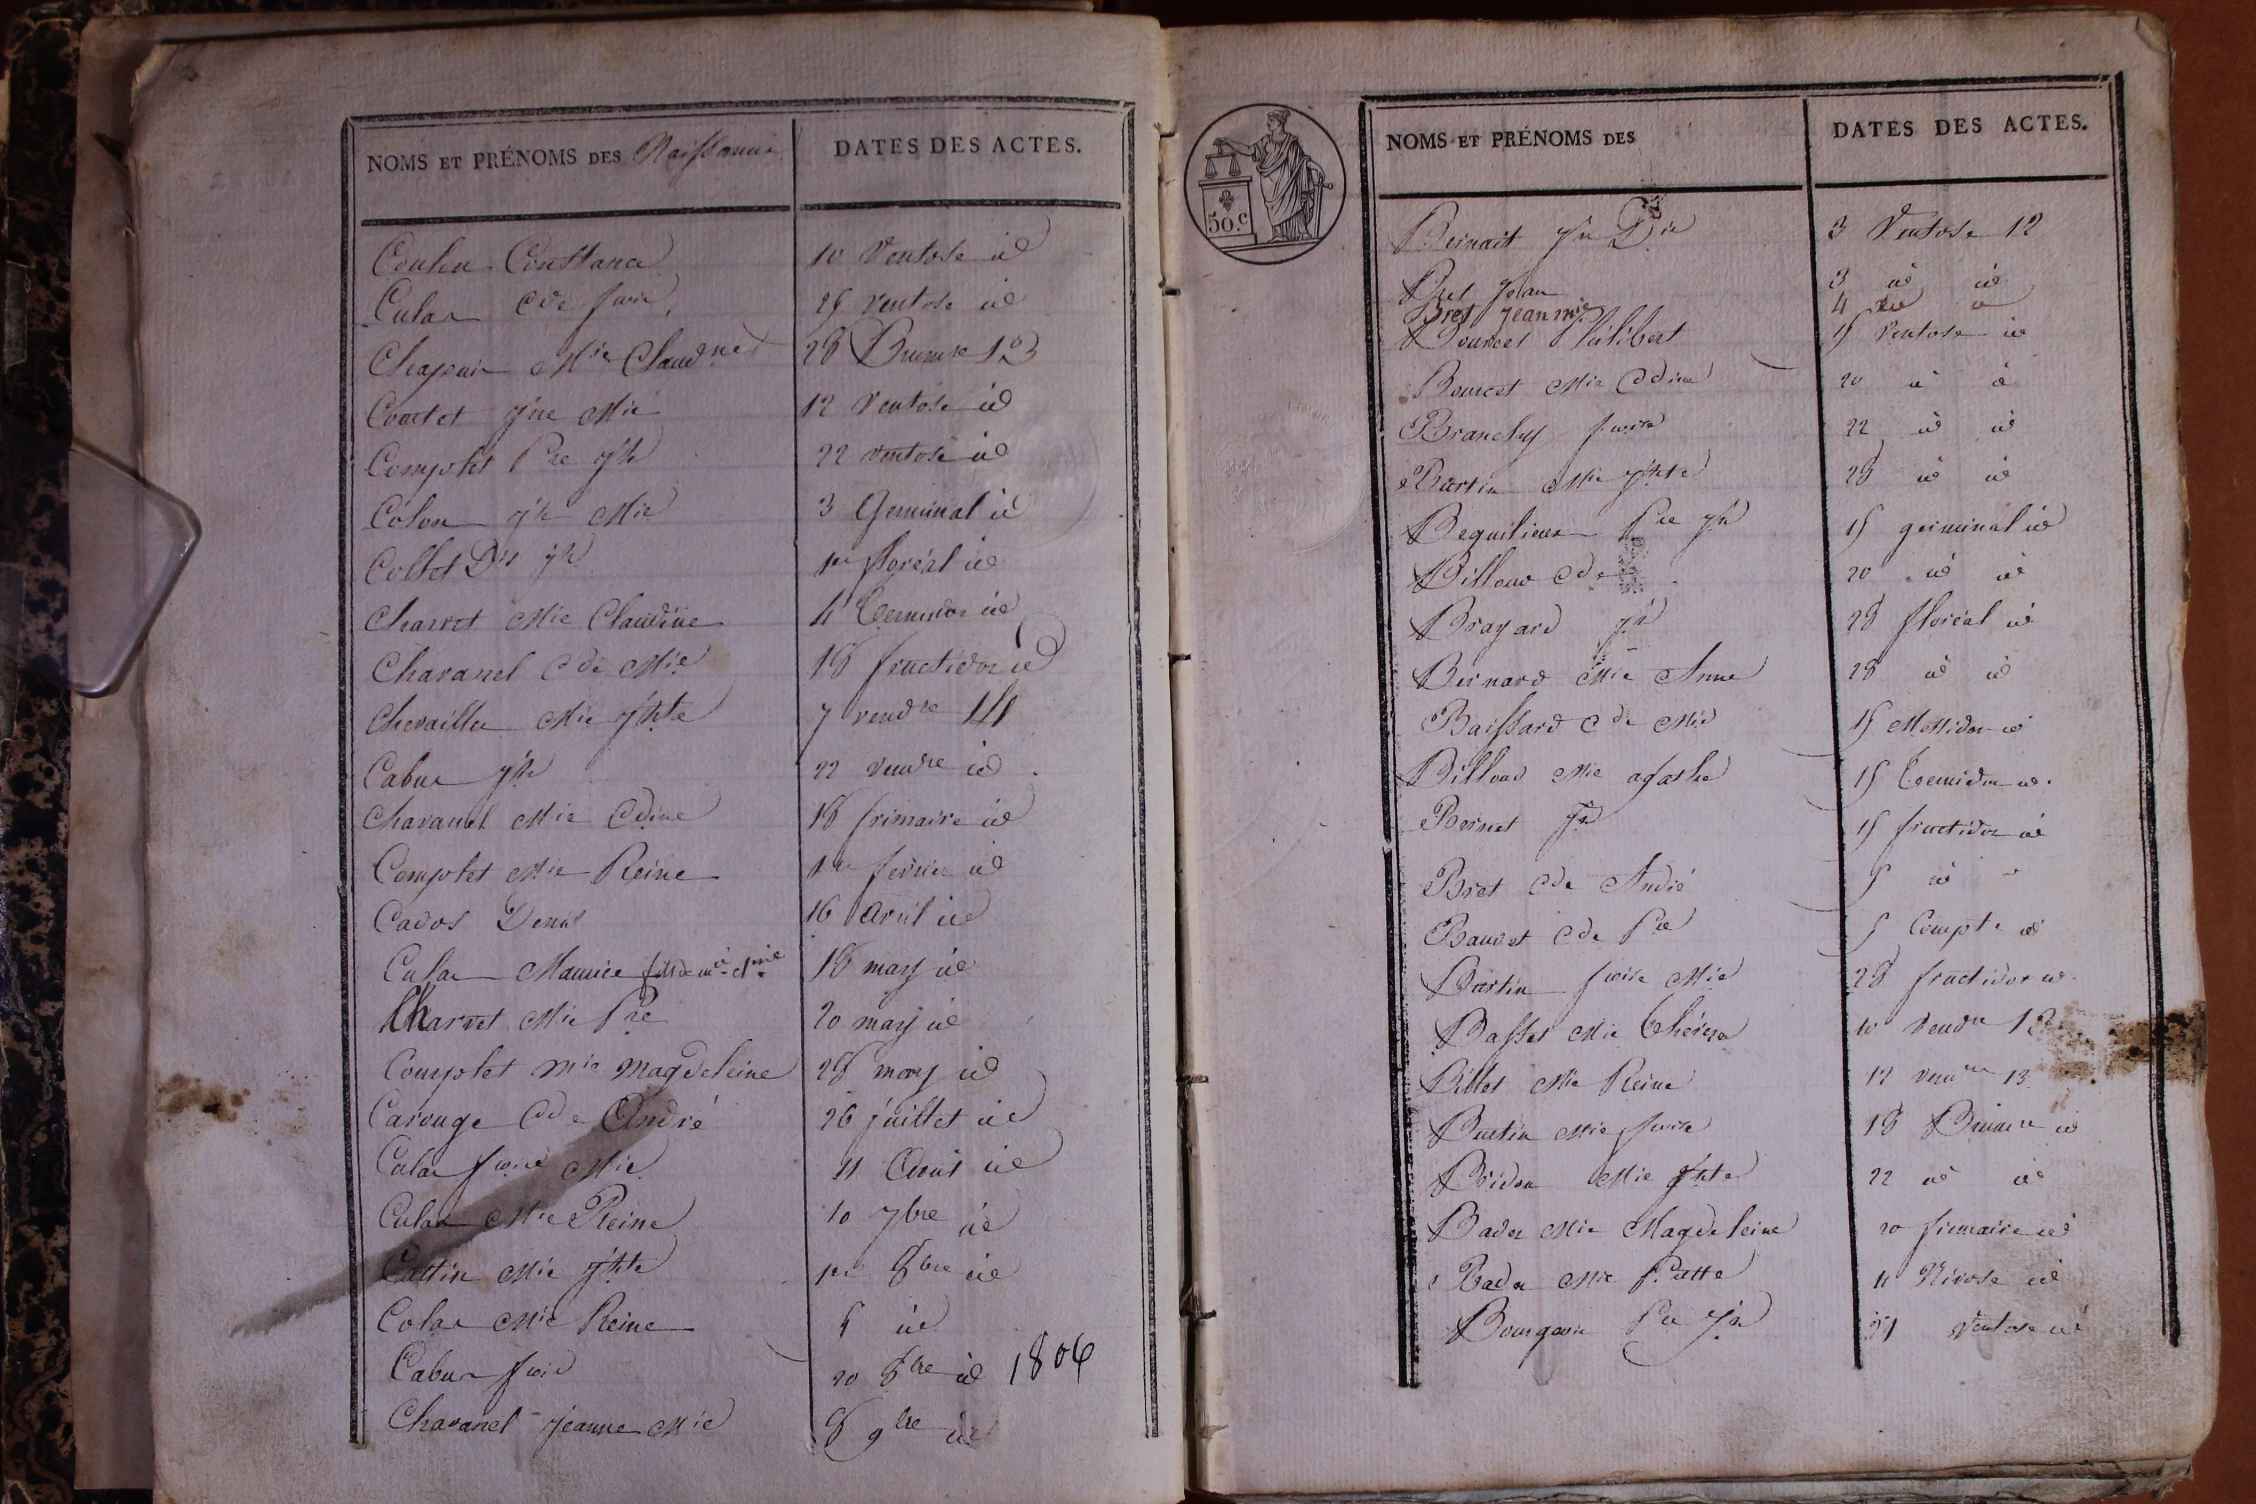 NOMS ET PRÉNOMS DES Naissances
DATES DES ACTES.
Constance 10 Ventose id
Cular Cde fcoise 25 ventose id
Mie Claudne 28 Brumre 13
Coartet Jne Mie 12 Ventose id
Compolet Pre Jh 22 ventose id
Colon Jh Mie 3 Germinal id
Collet Dis Jh 1er floréal id
Charvet Mie Claudine 4 Termidor id
Chavanel Cde Mie 18 fructidor id
Chevaillier Mie Jhte 7 vendre 14
Cabur Jh 22 Vendre id
Chavanel Mie Cdine 18 frimaire id
Compolet Mie Reine 1er fevrier id
Cados Denis 16 Avril id
Cular Maurice 18 may id
Charvet Mie Pre 20 may id
Compolet Mie Magdeleine 28 may id
Carouge Cde André 26 juillet id
Cular fcoise Mie 11 Aout id
Cular Mie Reine 10 7bre id
Cattin Mie Jhte 1er 8bre id
Colar Mie Reine 5 id
Cabur fcois 20 8bre id 1806
Chavanel Jeanne Mie 8 9bre id
50.c
NOMS ET PRÉNOMS DES
DATES DES ACTES.
3 Ventose 12
Bret Jean 3 id id
Bret Jean mie 4 id
Bourcet Philibert 15 Ventose id
Bourcet Mie Cdine 20 id id
Branchy fcoise 22 id id
Bartin Mie Jhte 28 id id
Bequilieux Pre Jh 15 germinal id
Billoud Cde 20 id id
Brayard Jh 28 floréal id
Bernard Mie Anne 28 id id
Baissard Cde Mie 15 Messidor id
Billoud Mie agathe 15 Termidor id.
Bernet Jh 15 fructidor id
Bret Cde André 5 id
Baudet Cde Pre 5 Compte id
Bartin fcoise Mie 28 fructidor id
Basset Mie Thérese 10 Vendre 13
Billet Mie Reine 12 Vendre 13
Bartin Mie fcoise 18 Brumre id
Bridon Mie Jhte 22 id id
Bador Mie Magdeleine 20 frimaire id
Bador Mie Pierrette 11 Nivose id
Bourgeois Pre Jh 21 Ventose id